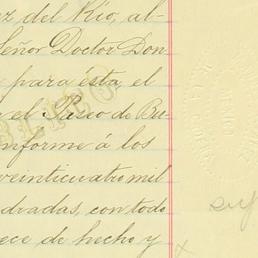 ez del Río, al-
Señor Doctor Don
e para ésta, el
e el Paseo de Bu-
informe á los
veinticuatro mil
adradas, con todo
ece de hecho y